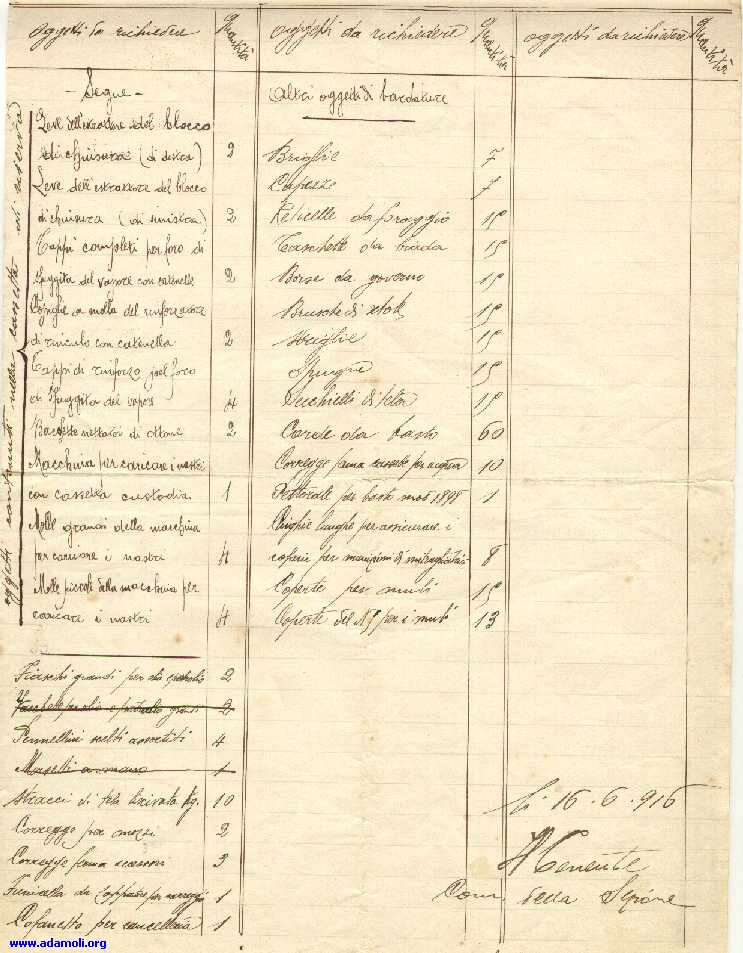 oggetti da richiedere Quantità
- Segue -
oggetti contenuti nella cassetta di riserva
Leve dell'estrattore del blocco
di chiusura (di destra) 2
Leve dell'estrattore del blocco
di chiusura (di sinistra) 2
Tappi completi per foro di
fuggita del vapore con catenelle 2
a molla del rinforzatore
di rinculo con catenella 2
Tappi di rinforzo pel foro
di fuggita del vapore 4
Bacchette nettatoi di ottone 2
Macchina per caricare i nastri
con cassetta custodia 1
Molle grandi della macchina
per caricare i nastri 4
Molle piccole della macchina per
caricare i nastri 4
Fiaschi grandi per olio e petrolio 2
2
Pennellini scelti assortiti 4
Morsetti a mano 1
Stracci di tela lisciviata Kg. 10
Corregge per mozzi 2
Corregge ferma 3
Funicella da 1
Cofanetto per cancelleria 1
oggetti da richiedere Quantità
Altri oggetti di bardature
Briglie 7
Capezze 7
Reticelle da foraggio 15
Taschette da biada 15
Borse da governo 15
Brusche di 15
Striglie 15
Spugne 15
Secchielli di tela 15
Corde da basto 60
Corregge ferma cassette per acqua 10
Pettorale per basto mod 1898 1
Cinghie lunghe per assicurare i
cofani per munizioni di mitragliatrici 8
Coperte per muli 15
Coperte del N° per i muli 13
oggetti da richiedere Quantità
li 16.6.916
Il Tenente
Com. della Sezione
www.adamoli.org